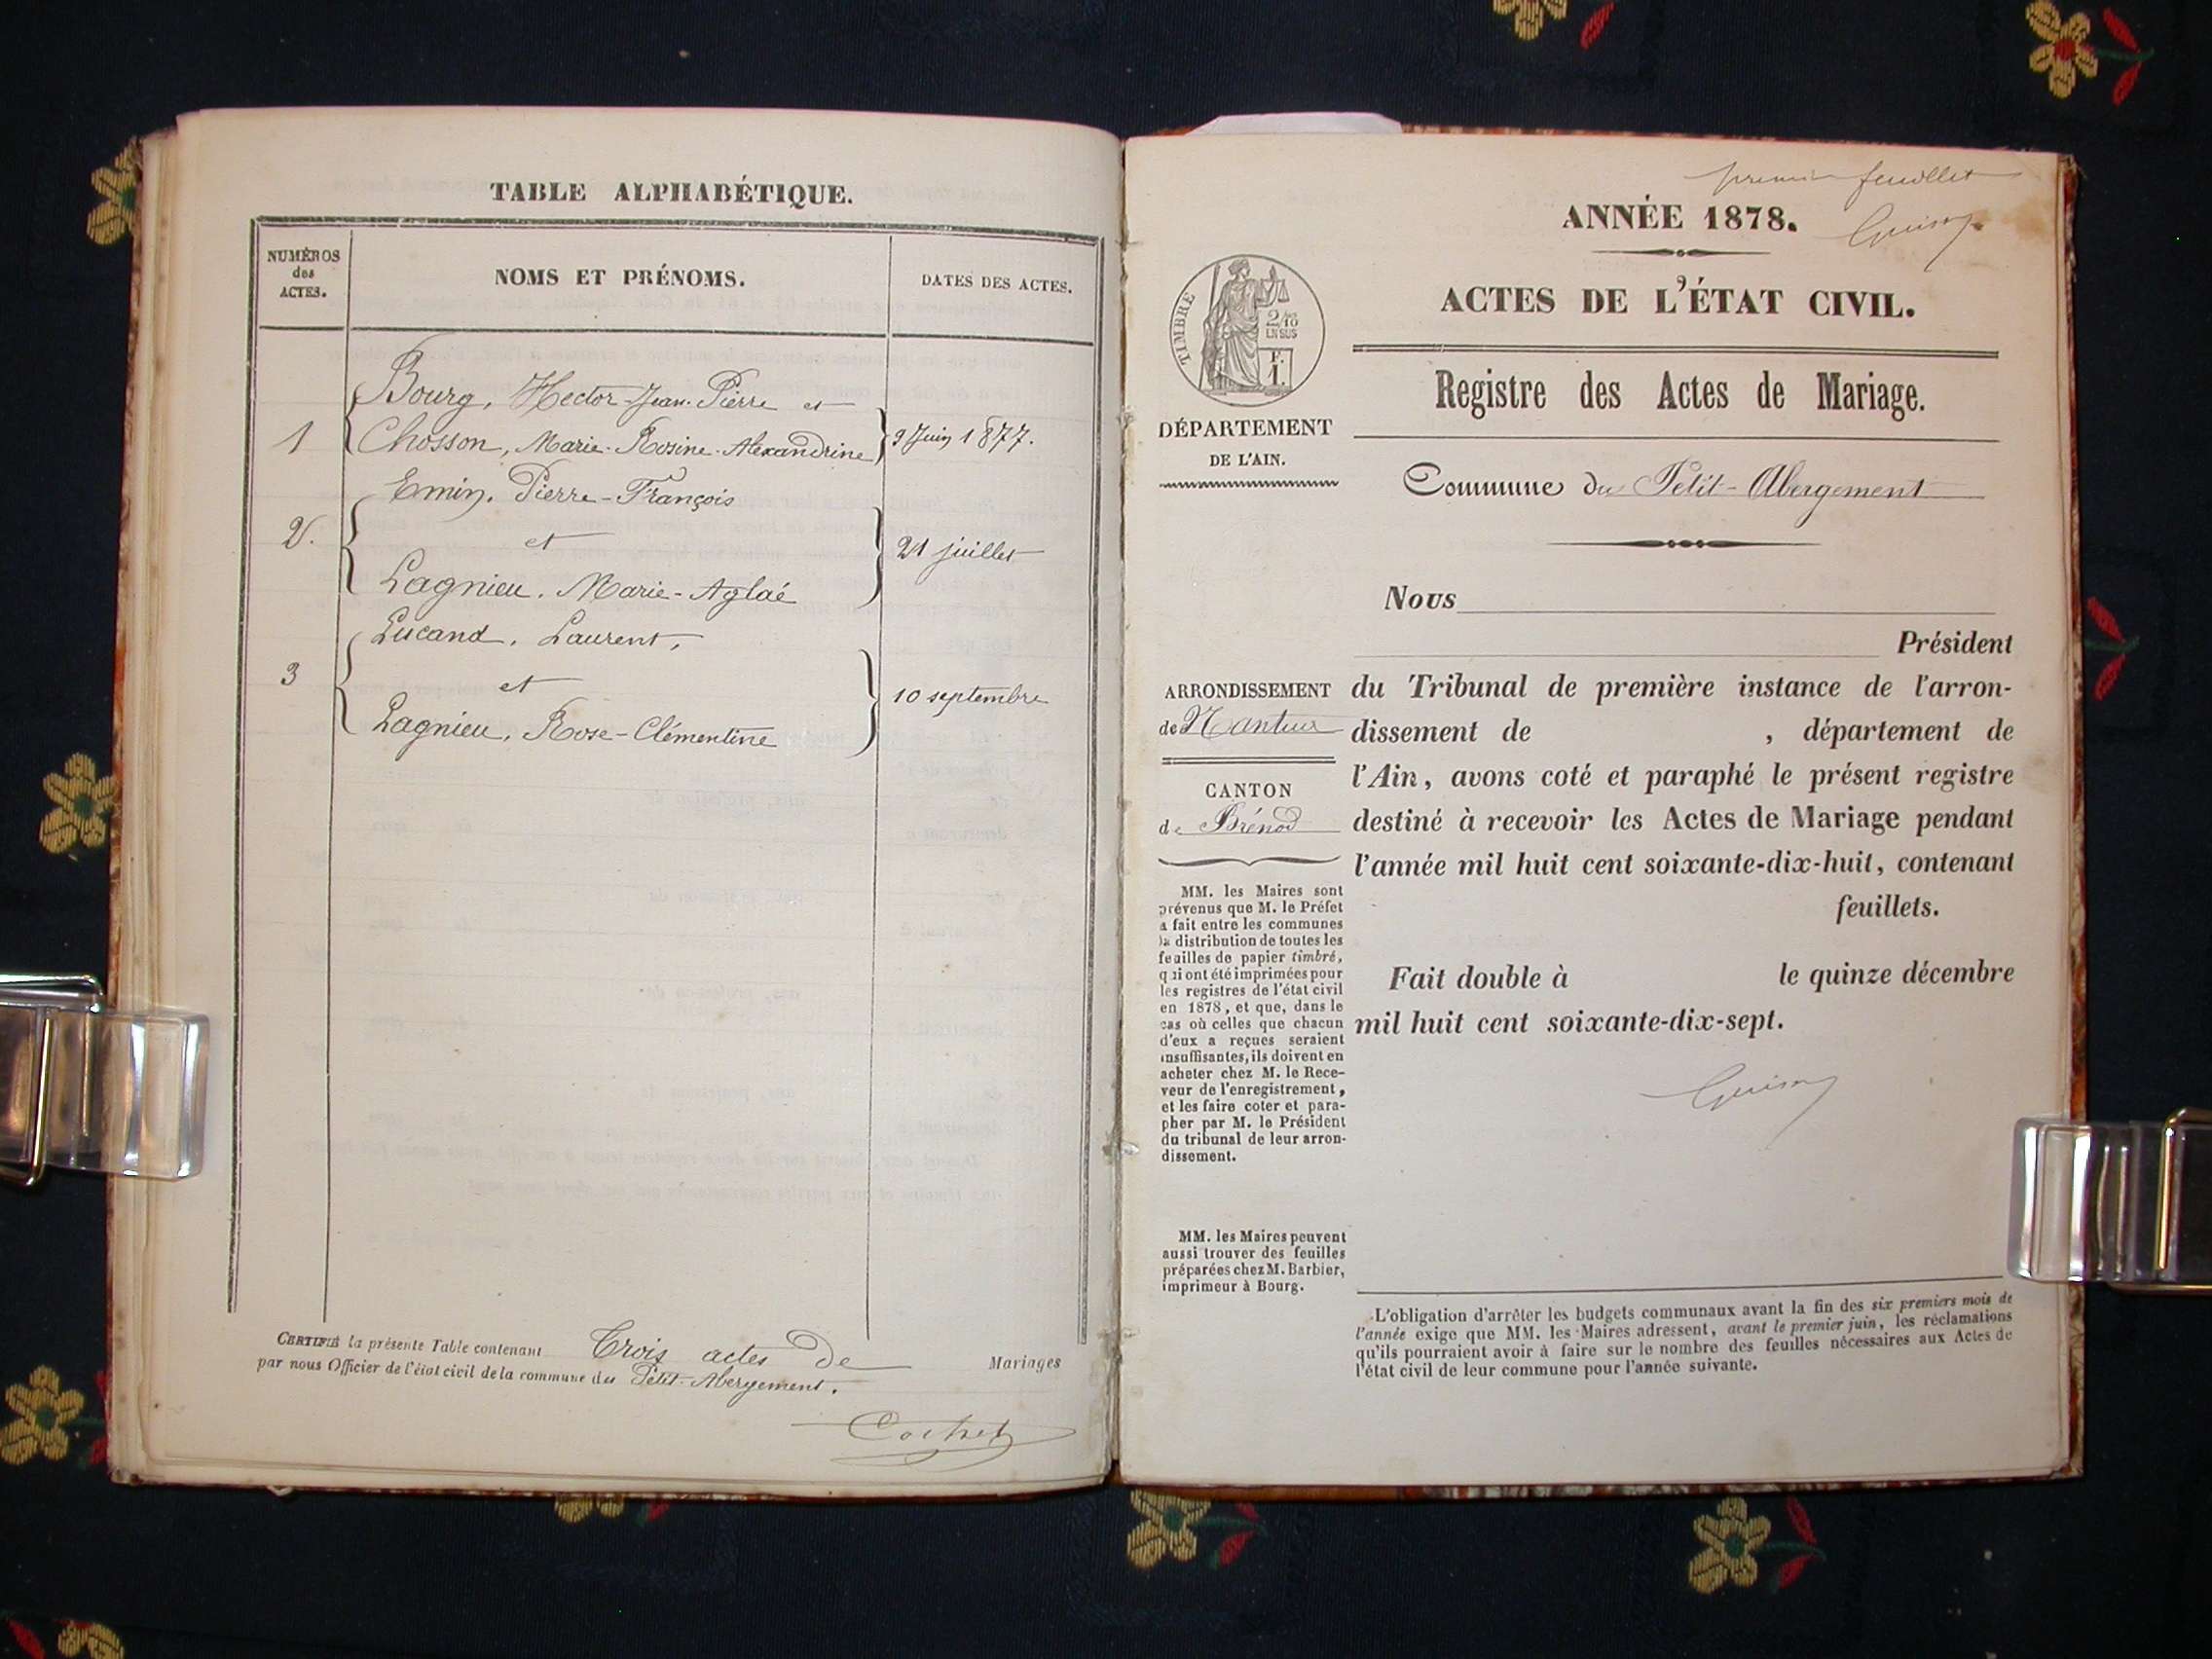 TABLE ALPHABÉTIQUE.
NUMÉROS
des
ACTES.
NOMS ET PRÉNOMS.
DATES DES ACTES.
Bourg, Hector-Jean-Pierre et
1 Chosson, Marie-Rosine-Alexandrine 9 Juin 1877.
Emin, Pierre-François
2. et 21 juillet
Lagnieu, Marie-Aglaé
Lucand, Laurent,
3 et 10 septembre
Lagnieu, Rose-Clémentine
CERTIFIÉ la présente Table contenant Trois actes de Mariages
par nous Officier de l'état civil de la commune du Petit-Abergement.
Cochet
premier feuillet
ANNÉE 1878.
ACTES DE L'ÉTAT CIVIL.
Registre des Actes de Mariage.
Commune du Petit-Abergement
TIMBRE
2/10
EN SUS
F.
1.
DÉPARTEMENT
DE L'AIN.
ARRONDISSEMENT
de Nantua
CANTON
de Brénod
MM. les Maires sont
prévenus que M. le Préfet
a fait entre les communes
la distribution de toutes les
feuilles de papier timbré,
qui ont été imprimées pour
les registres de l'état civil
en 1878, et que, dans le
cas où celles que chacun
d'eux a reçues seraient
insuffisantes, ils doivent en
acheter chez M. le Rece-
veur de l'enregistrement,
et les faire coter et para-
pher par M. le Président
du tribunal de leur arron-
dissement.
MM. les Maires peuvent
aussi trouver des feuilles
préparées chez M. Barbier,
imprimeur à Bourg.
Nous
Président
du Tribunal de première instance de l'arron-
dissement de , département de
l'Ain, avons coté et paraphé le présent registre
destiné à recevoir les Actes de Mariage pendant
l'année mil huit cent soixante-dix-huit, contenant
feuillets.
Fait double à le quinze décembre
mil huit cent soixante-dix-sept.
L'obligation d'arrêter les budgets communaux avant la fin des six premiers mois de
l'année exige que MM. les Maires adressent, avant le premier juin, les réclamations
qu'ils pourraient avoir à faire sur le nombre des feuilles nécessaires aux Actes de
l'état civil de leur commune pour l'année suivante.